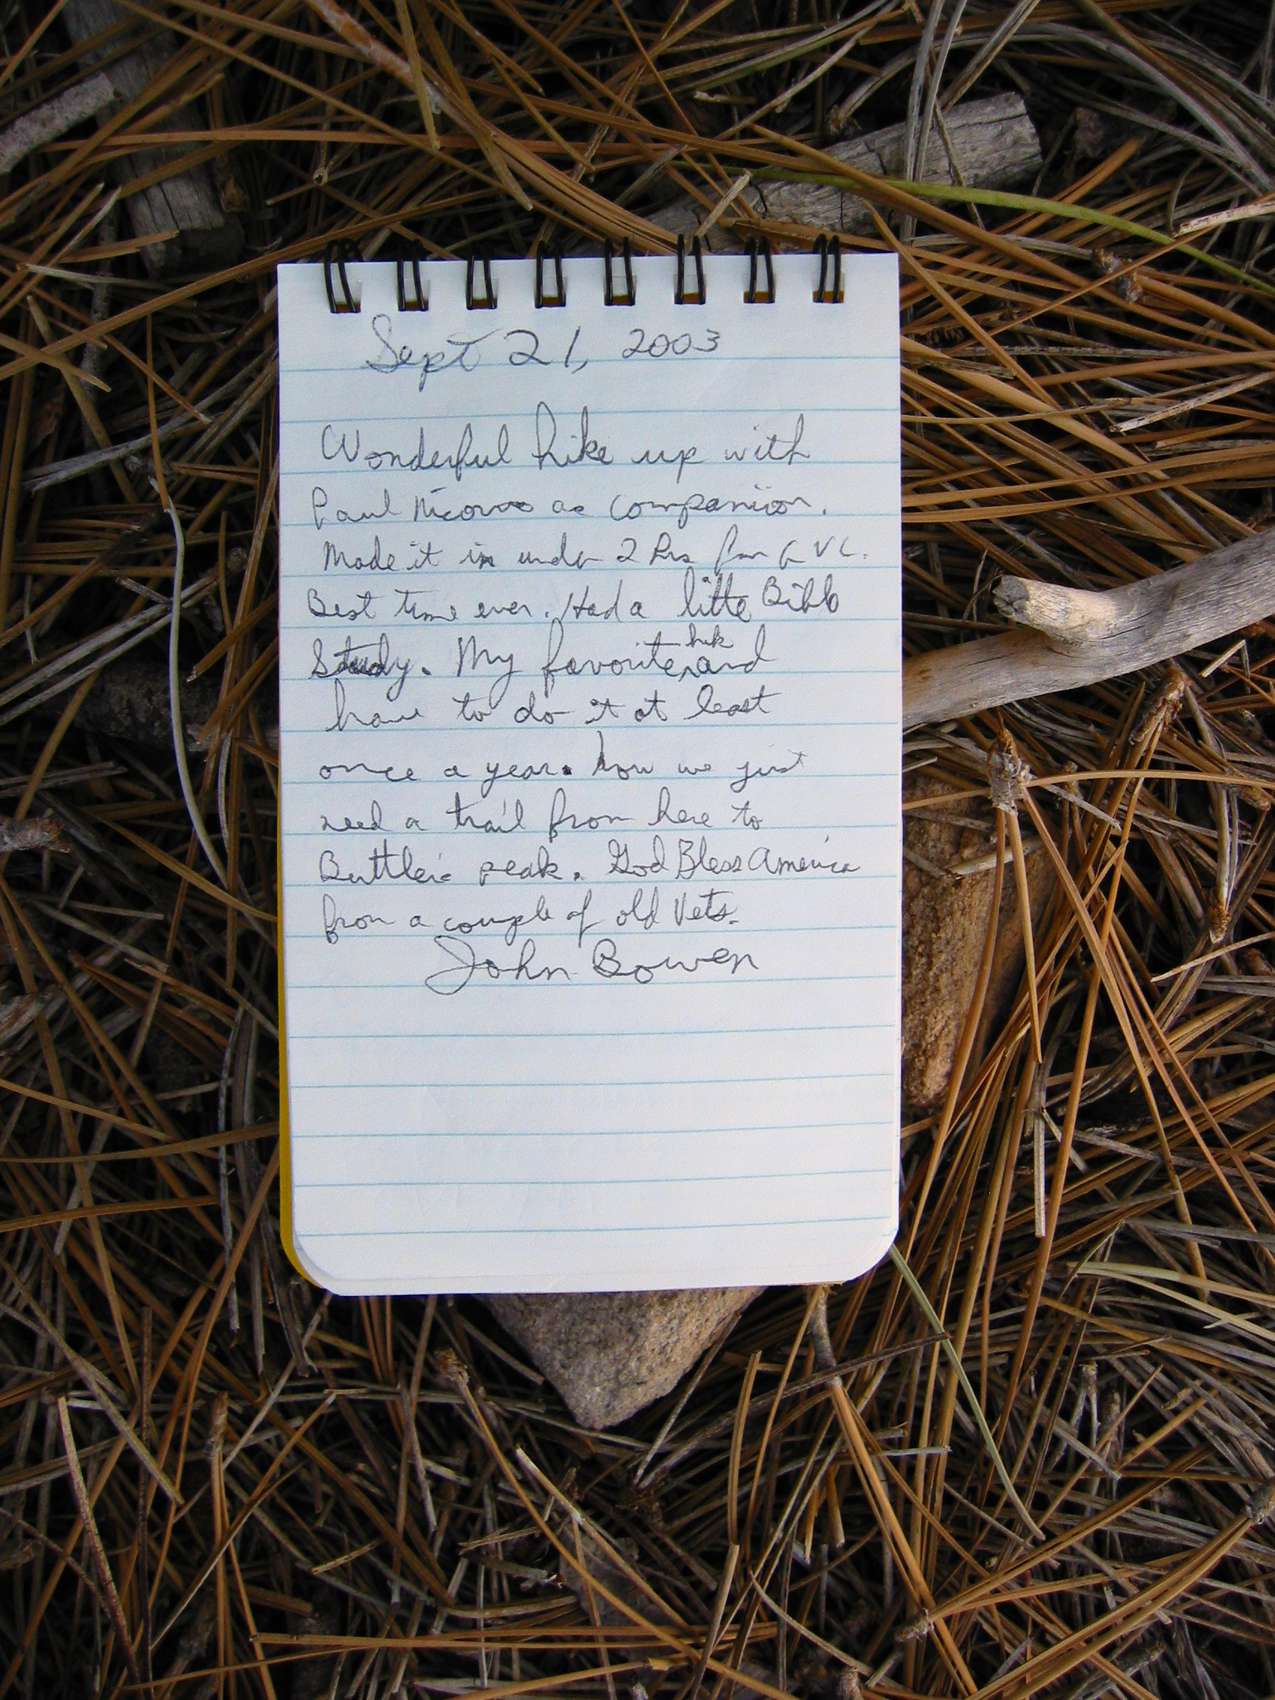 Sept 21, 2003
Wonderful hike up with
Paul as companion.
Made it in under 2 hrs from G V C.
Best time ever. Had a little Bible
Study. My favorite hike and
have to do it at least
once a year. Now we just
need a trail from here to
Buttler's peak. God Bless America
from a couple of old Vets.
John Bowen